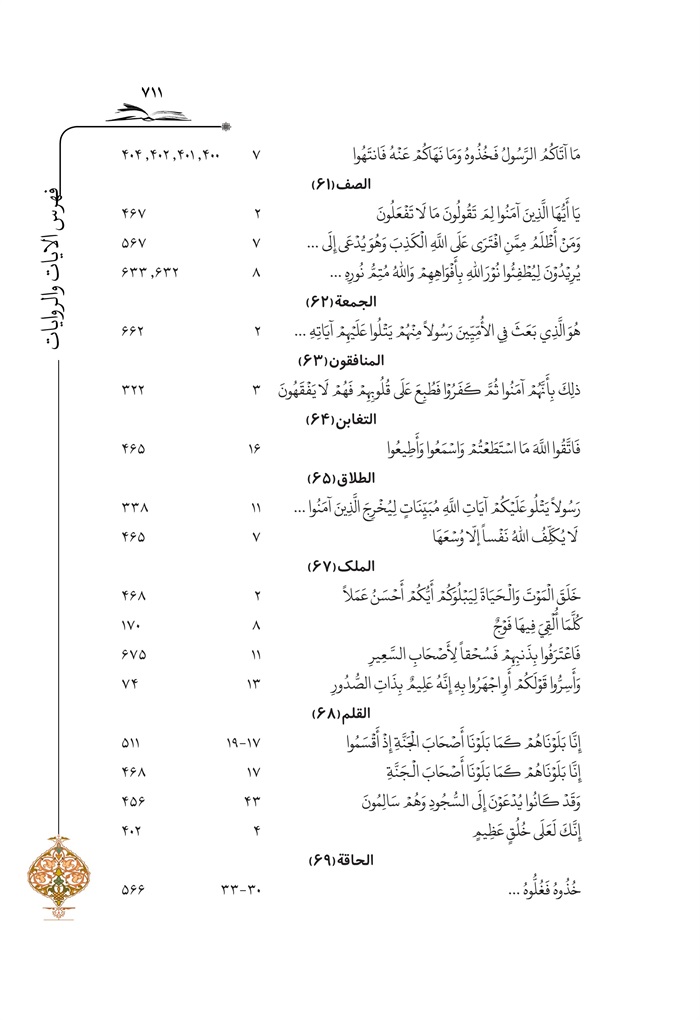 ۷۱۱
فهرس الآيات والروايات
مَا آتَاكُمُ الرَّسُولُ فَخُذُوهُ وَمَا نَهَاكُمْ عَنْهُ فَانتَهُوا ۷ ۴۰۰, ۴۰۱, ۴۰۲, ۴۰۴
الصف(۶۱)
يَا أَيُّهَا الَّذِينَ آمَنُوا لِمَ تَقُولُونَ مَا لَا تَفْعَلُونَ ۲ ۴۶۷
وَمَنْ أَظْلَمُ مِمَّنِ افْتَرَى عَلَى اللَّهِ الْكَذِبَ وَهُوَ يُدْعَى إِلَى ... ۷ ۵۶۷
يُرِيْدُوْنَ لِيُطْفِئُوا نُوْرَ اللهِ بِأَفْوَاهِهِمْ وَاللهُ مُتِمُّ نُورِهِ ... ۸ ۶۳۲, ۶۳۳
الجمعة(۶۲)
هُوَ الَّذِي بَعَثَ فِي الأُمِّيِّينَ رَسُولاً مِنْهُمْ يَتْلُوا عَلَيْهِمْ آيَاتِهِ ... ۲ ۶۶۲
المنافقون(۶۳)
ذلِكَ بِأَنَّهُمْ آمَنُوا ثُمَّ كَفَرُوْا فَطُبِعَ عَلَى قُلُوبِهِمْ فَهُمْ لَا يَفْقَهُونَ ۳ ۳۲۲
التغابن(۶۴)
فَاتَّقُوا اللَّهَ مَا اسْتَطَعْتُمْ وَاسْمَعُوا وَأَطِيعُوا ۱۶ ۴۶۵
الطلاق(۶۵)
رَسُولاً يَتْلُو عَلَيْكُمْ آيَاتِ اللَّهِ مُبَيِّنَاتٍ لِيُخْرِجَ الَّذِينَ آمَنُوا ... ۱۱ ۳۳۸
لَا يُكَلِّفُ اللهُ نَفْساً إلَا وُسْعَهَا ۷ ۴۶۵
الملک(۶۷)
خَلَقَ الْمَوْتَ وَالْحَيَاةَ لِيَبْلُوَكُمْ أَيُّكُمْ أَحْسَنُ عَمَلاً ۲ ۴۶۸
كُلَّمَا أُلْقِيَ فِيهَا فَوْجٌ ۸ ۱۷۰
فَاعْتَرَفُوا بِذَنبِهِمْ فَسُحْقاً لِأَصْحَابِ السَّعِيرِ ۱۱ ۶۷۵
وَأَسِرُّوا قَوْلَكُمْ أَوِ اجْهَرُوا بِهِ إِنَّهُ عَلِيمٌ بِذَاتِ الصُّدُورِ ۱۳ ۷۴
القلم(۶۸)
إِنَّا بَلَوْنَاهُمْ كَمَا بَلَوْنَا أَصْحَابَ الْجَنَّةِ إِذْ أَقْسَمُوا ۱۷-۱۹ ۵۱۱
إِنَّا بَلَوْنَاهُمْ كَمَا بَلَوْنَا أَصْحَابَ الْجَنَّةِ ۱۷ ۴۶۸
وَقَدْ كَانُوا يُدْعَوْنَ إِلَى السُّجُودِ وَهُمْ سَالِمُونَ ۴۳ ۴۵۶
إِنَّكَ لَعَلَى خُلُقٍ عَظِيمٍ ۴ ۴۰۲
الحاقة(۶۹)
خُذُوهُ فَغُلُّوهُ ... ۳۰-۳۳ ۵۶۶